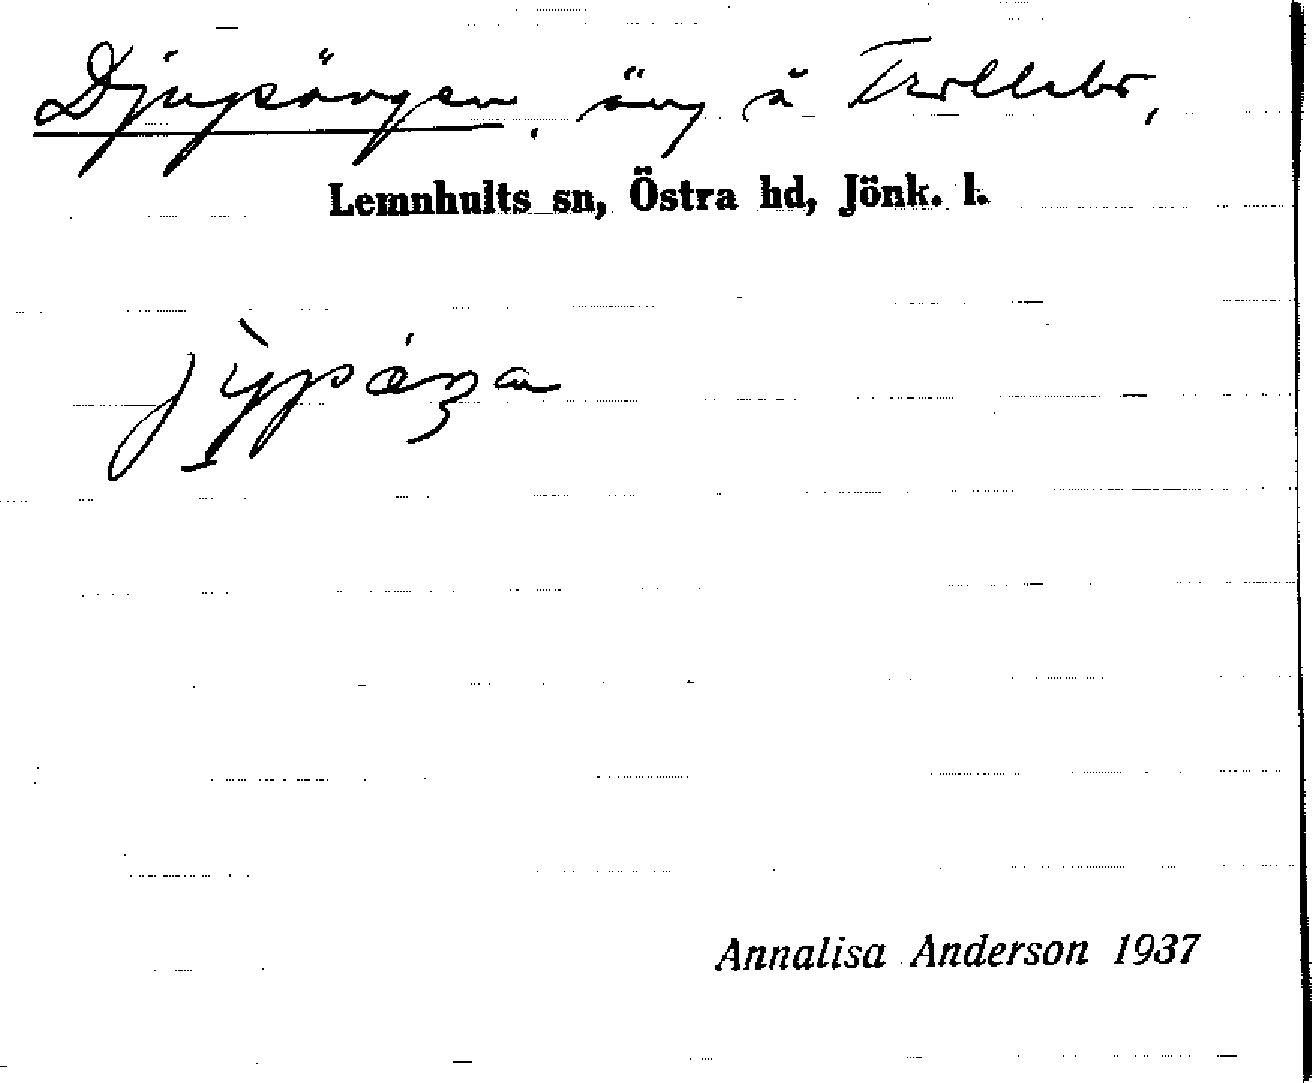 Djupängen, äng å Trollebo,
Lemnhults sn, Östra hd, Jönk. l.
Annalisa Anderson 1937